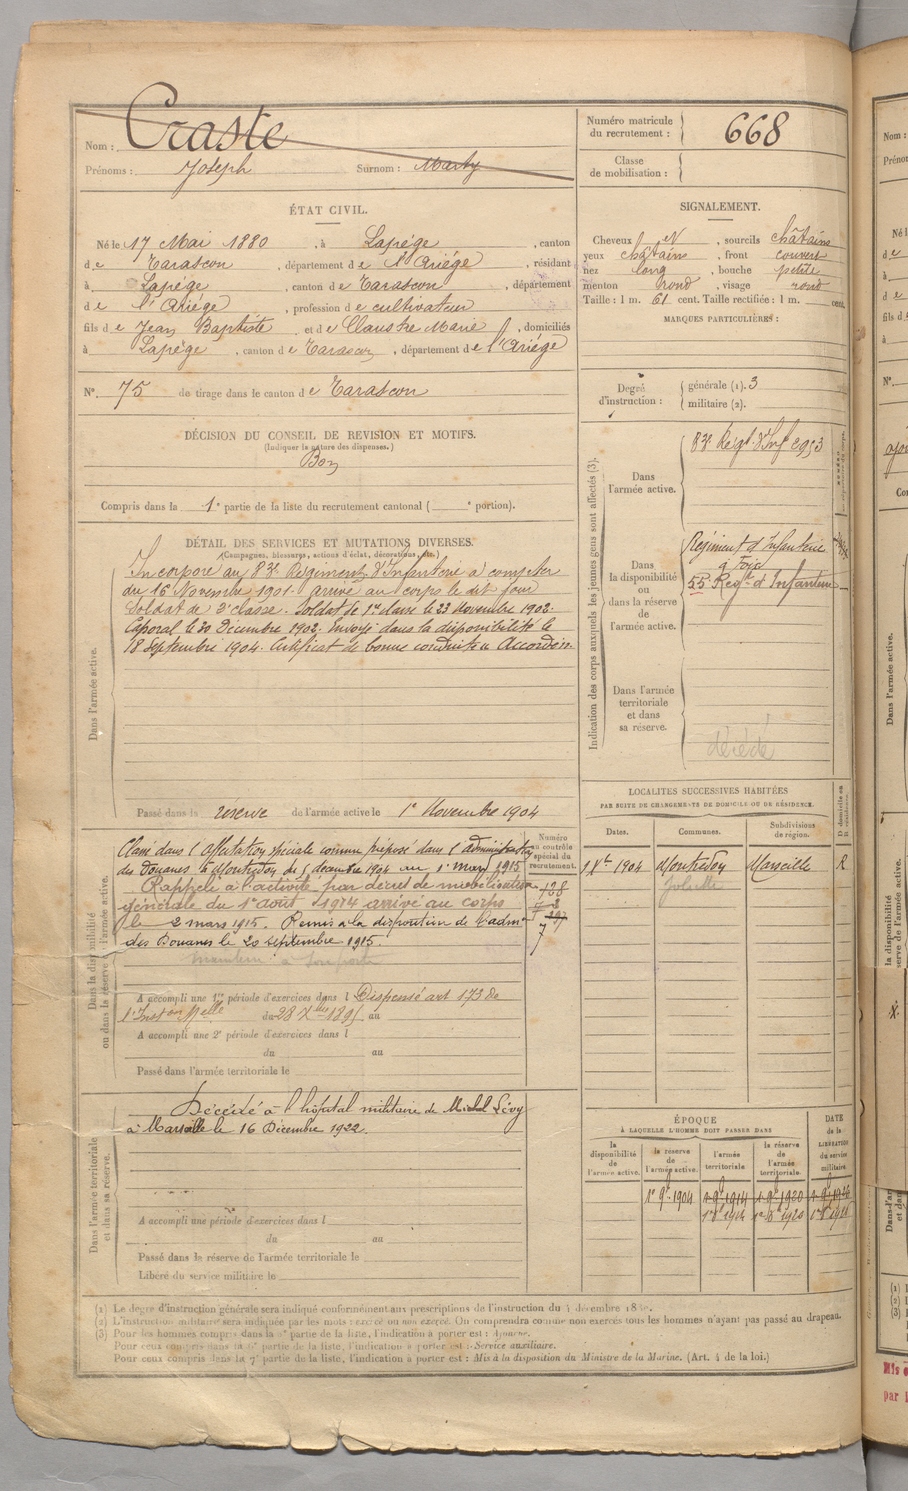 Nom : Craste
Prénoms : Joseph Surnom : Marty
Numéro matricule
du recrutement : 668
Classe
de mobilisation :
ÉTAT CIVIL.
Né le 17 Mai 1880, à Lapége, canton
de Tarascon, département de l'Ariége, résidant
à Lapége, canton de Tarascon, département
de l'Ariége, profession de cultivateur
fils de Jean Baptiste et de Claustre Marie, domiciliés
à Lapége, canton de Tarascon, département de l'Ariége
N° 75 de tirage dans le canton de Tarascon
SIGNALEMENT.
Cheveux N, sourcils châtains
yeux châtains, front couvert
nez long, bouche petite
menton rond, visage rond
Taille : 1 m. 61 cent. Taille rectifiée : 1 m. cent.
MARQUES PARTICULIÈRES :
Degré
d'instruction :
générale (1). 3
militaire (2).
DÉCISION DU CONSEIL DE REVISION ET MOTIFS.
(Indiquer la nature des dispenses.)
Bon
Compris dans la 1e partie de la liste du recrutement cantonal ( e portion).
DÉTAIL DES SERVICES ET MUTATIONS DIVERSES.
(Campagnes, blessures, actions d'éclat, décorations, etc.)
Dans l'armée active.
Incorporé au 83e Régiment d'Infanterie à compter
du 16 Novembre 1901. arrivé au corps le dit jour
Soldat de 2e classe. Soldat de 1re classe le 23 Novembre 1902.
Caporal le 30 Décembre 1902. Envoyé dans la disponibilité le
18 Septembre 1904. Certificat de bonne conduite Accordé
Passé dans la réserve de l'armée active le 1er Novembre 1904
Indication des corps auxquels les jeunes gens sont affectés (3).
Dans
l'armée active.
83e Regt d'Inf
Dans
la disponibilité
ou
dans la réserve
de
l'armée active.
Régiment d'Infanterie
de Foix
55 Regt d'Infanterie
Dans l'armée
territoriale
et dans
sa réserve.
décédé
Dans la disponibilité
ou dans la réserve de l'armée active.
Numéro
au contrôle
spécial du
recrutement.
Classé dans l'affectation spéciale comme préposé dans l'administration
des Douanes à Montredon du 5 decembre 1904 au 1er Mars 1915
Rappelé à l'activité par décret de mobilisation
générale du 1er Août 1914 arrivé au corps
le 2 mars 1915. Remis à la disposition de l'admon
des Douanes le 20 septembre 1915.
A accompli une 1re période d'exercices dans l Dispensé art
du 28 Xbre 1895 au
A accompli une 2e période d'exercices dans l
du au
Passé dans l'armée territoriale le
LOCALITES SUCCESSIVES HABITÉES
PAR SUITE DE CHANGEMENTS DE DOMICILE OU DE RÉSIDENCE.
Dates. Communes. Subdivisions
de région.
D domicile ou
R résidence.
1 Xbre 1904 Montredon Marseille R
Dans l'armée territoriale
et dans sa réserve.
Décédé à l'hôpital militaire de Michel Lévy
à Marseille le 16 Décembre 1922.
A accompli une période d'exercices dans l
du au
Passé dans la réserve de l'armée territoriale le
Libéré du service militaire le
ÉPOQUE
À LAQUELLE L'HOMME DOIT PASSER DANS
DATE
de la
LIBÉRATION
du service
militaire.
la
disponibilité
de
l'armée active.
la réserve
de
l'armée active.
l'armée
territoriale.
la réserve
de
l'armée
territoriale.
1er 9bre 1904
(1) Le degré d'instruction générale sera indiqué conformément aux prescriptions de l'instruction du 4 décembre
(2) L'instruction militaire sera indiquée par les mots : exercé ou non exercé. On comprendra comme non exercés tous les hommes n'ayant pas passé au drapeau.
(3) Pour les hommes compris dans la partie de la liste, l'indication à porter est : Ajourné.
Pour ceux compris dans la partie de la liste, l'indication à porter est : Service auxiliaire.
Pour ceux compris dans la 7e partie de la liste, l'indication à porter est : Mis à la disposition du Ministre de la Marine. (Art. 4 de la loi.)